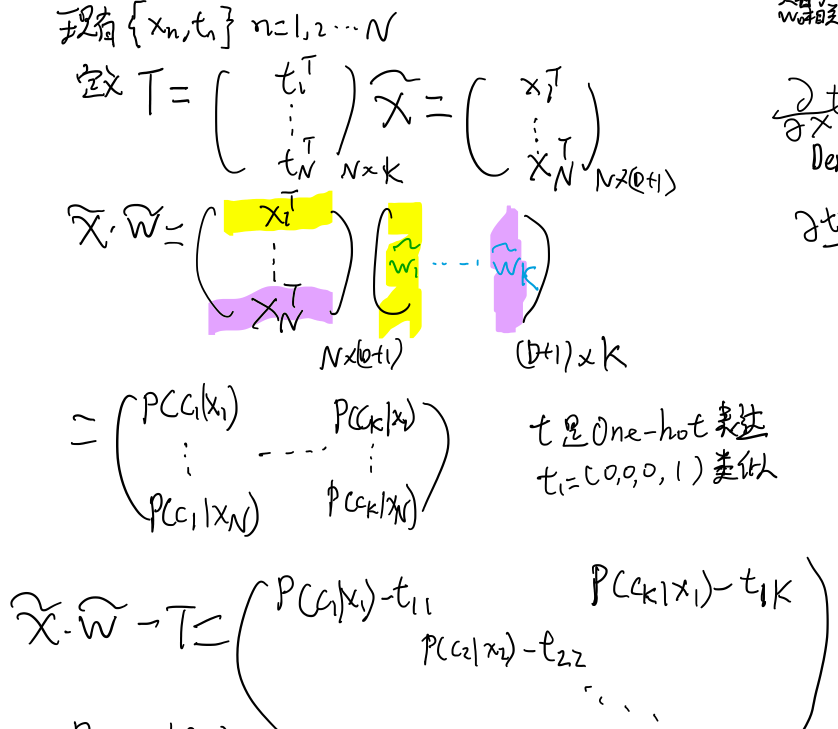 现有{xn,tn} n=1,2…N
定义 T = ( t1^T ⋮ tN^T ) N×K X̃ = ( x1^T ⋮ xN^T ) N×(D+1)
X̃·W̃ = ( x1^T ⋮ xN^T ) N×(D+1) ( w̃1 …… w̃K ) (D+1)×K
= ( P(C1|x1) …… P(CK|x1) ⋮ ⋮ P(C1|xN) P(CK|xN) )
t是One-hot表达
t1=(0,0,0,1)类似
X̃·W̃ - T = ( P(C1|x1)-t11 P(CK|x1)-t1K
P(C2|x2)-t22
⋱
∂t
∂x
∂t